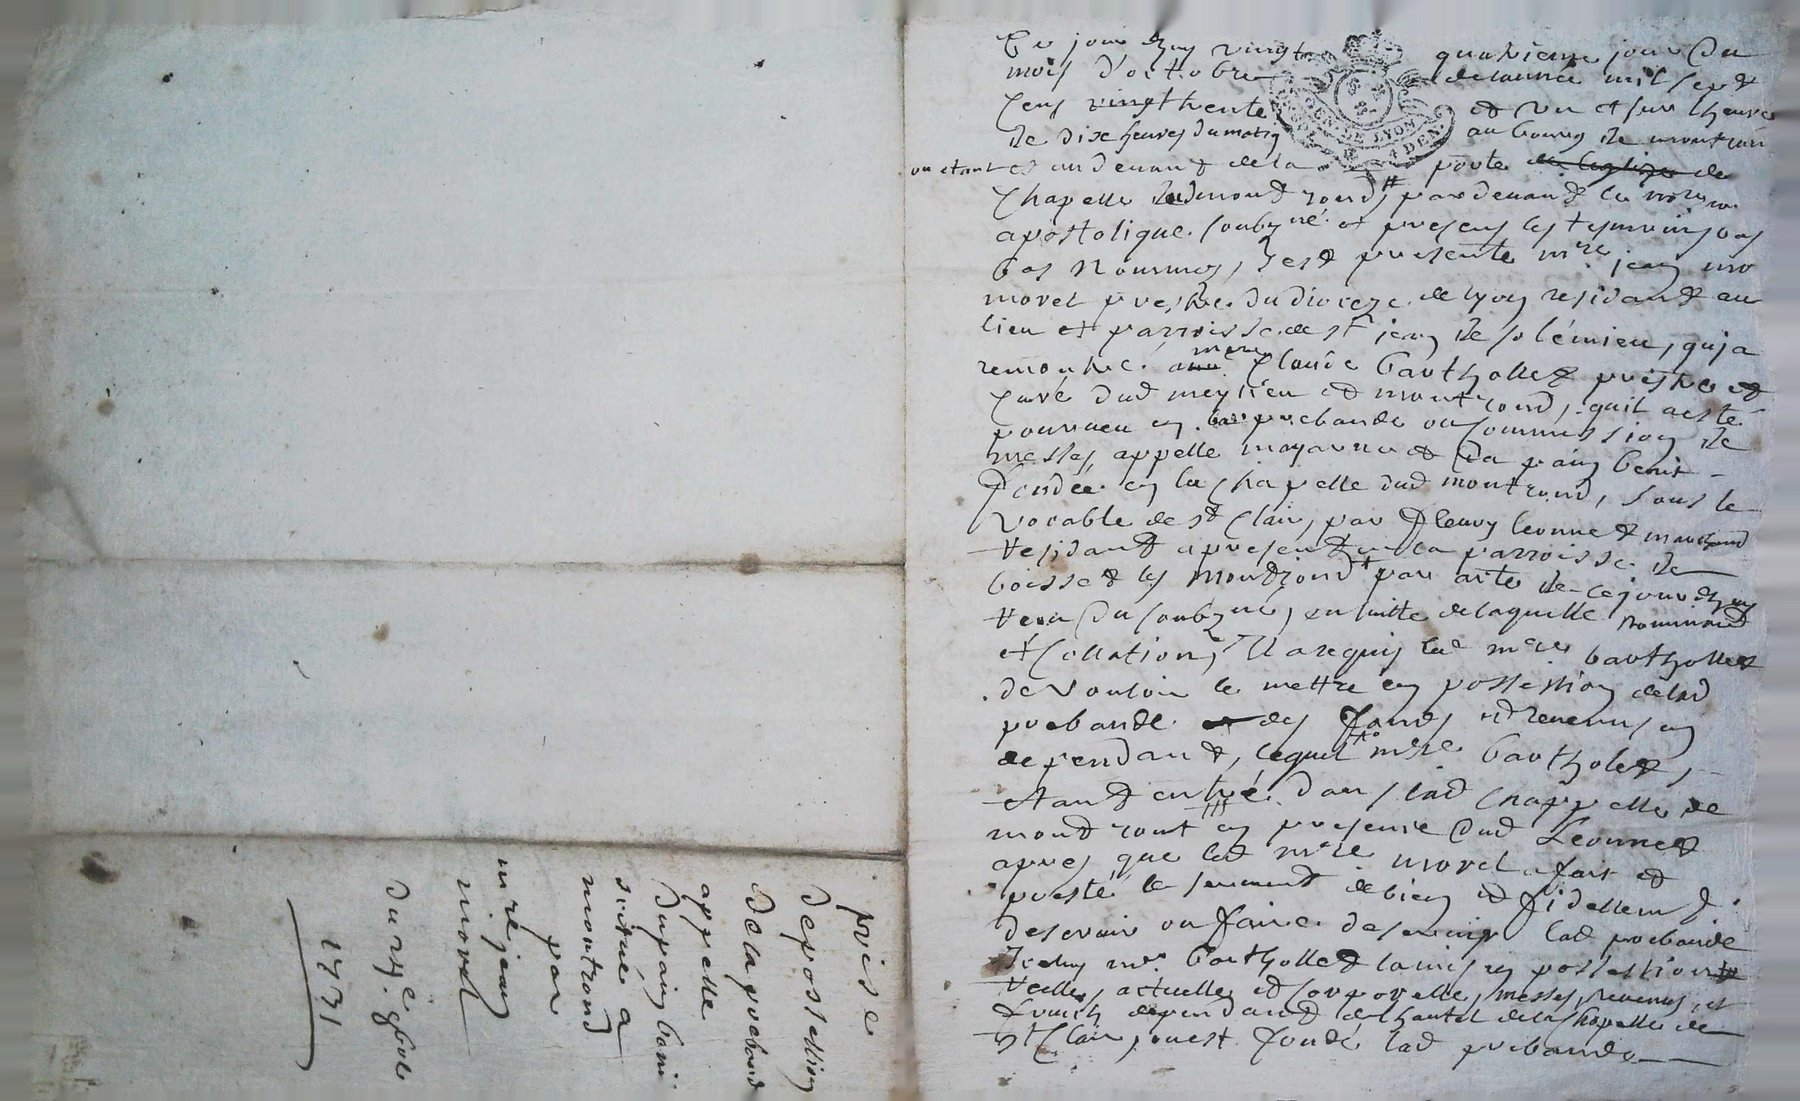 Ce jour d'huy vingt quatrieme jour du
mois d'octobre de lannée mil sept
cens vingt trente et un et sur lheure
de dixe heures du matin au bourg de montron
GEN. DE LYON
4 DEN.
ou etant et au devant de la porte de leglize de
chapelle dud mont rond, pardevant le no.re
apostolique soubzné et presens les tesmoins
bas nommés, s'est presenté m.re jean mo
morel prestre du dioceze de lyon residant au
lieu et parroisse de st jean de solémieu, qui a
remontré a m.re Claude barthollet prestre et
curé dud meylieu et mont rond, quil a esté
pourveu en prebande ou commission de
messes appellé et du pain benit
fondée en la chapelle dud mont rond, sous le
vocable de st Clair, par fleury leonnet marchand
residant a present en la parroisse de
boisset les montrond par acte de ce jourdhuy
receu du soubzné, en suitte de laquelle nomination
et collation, Il a requis led m.re barthollet
de vouloir le mettre en possession de lad
prebande des fonds et revenus en
dependant, lequel m.re bartholet,
etant entré dans lad chappelle de
mont ront en presence dud Leonnet
apres que led m.re morel a fait et
presté le serment de bien et fidellem.t
deservir ou faire deservir lad prebande
Iceluy m.re barthollet la mis en possession
reelle, actuelle et corporelle, messes, revenus, et
fruits dependant de lhautel de la chapelle de
st Clair, ou est fondé lad prebande
prise
de possession
de la prebande
appellé
du pain beni
scitué a
montrond
par
m.re jean
morel
du 24.e 8bre
1731